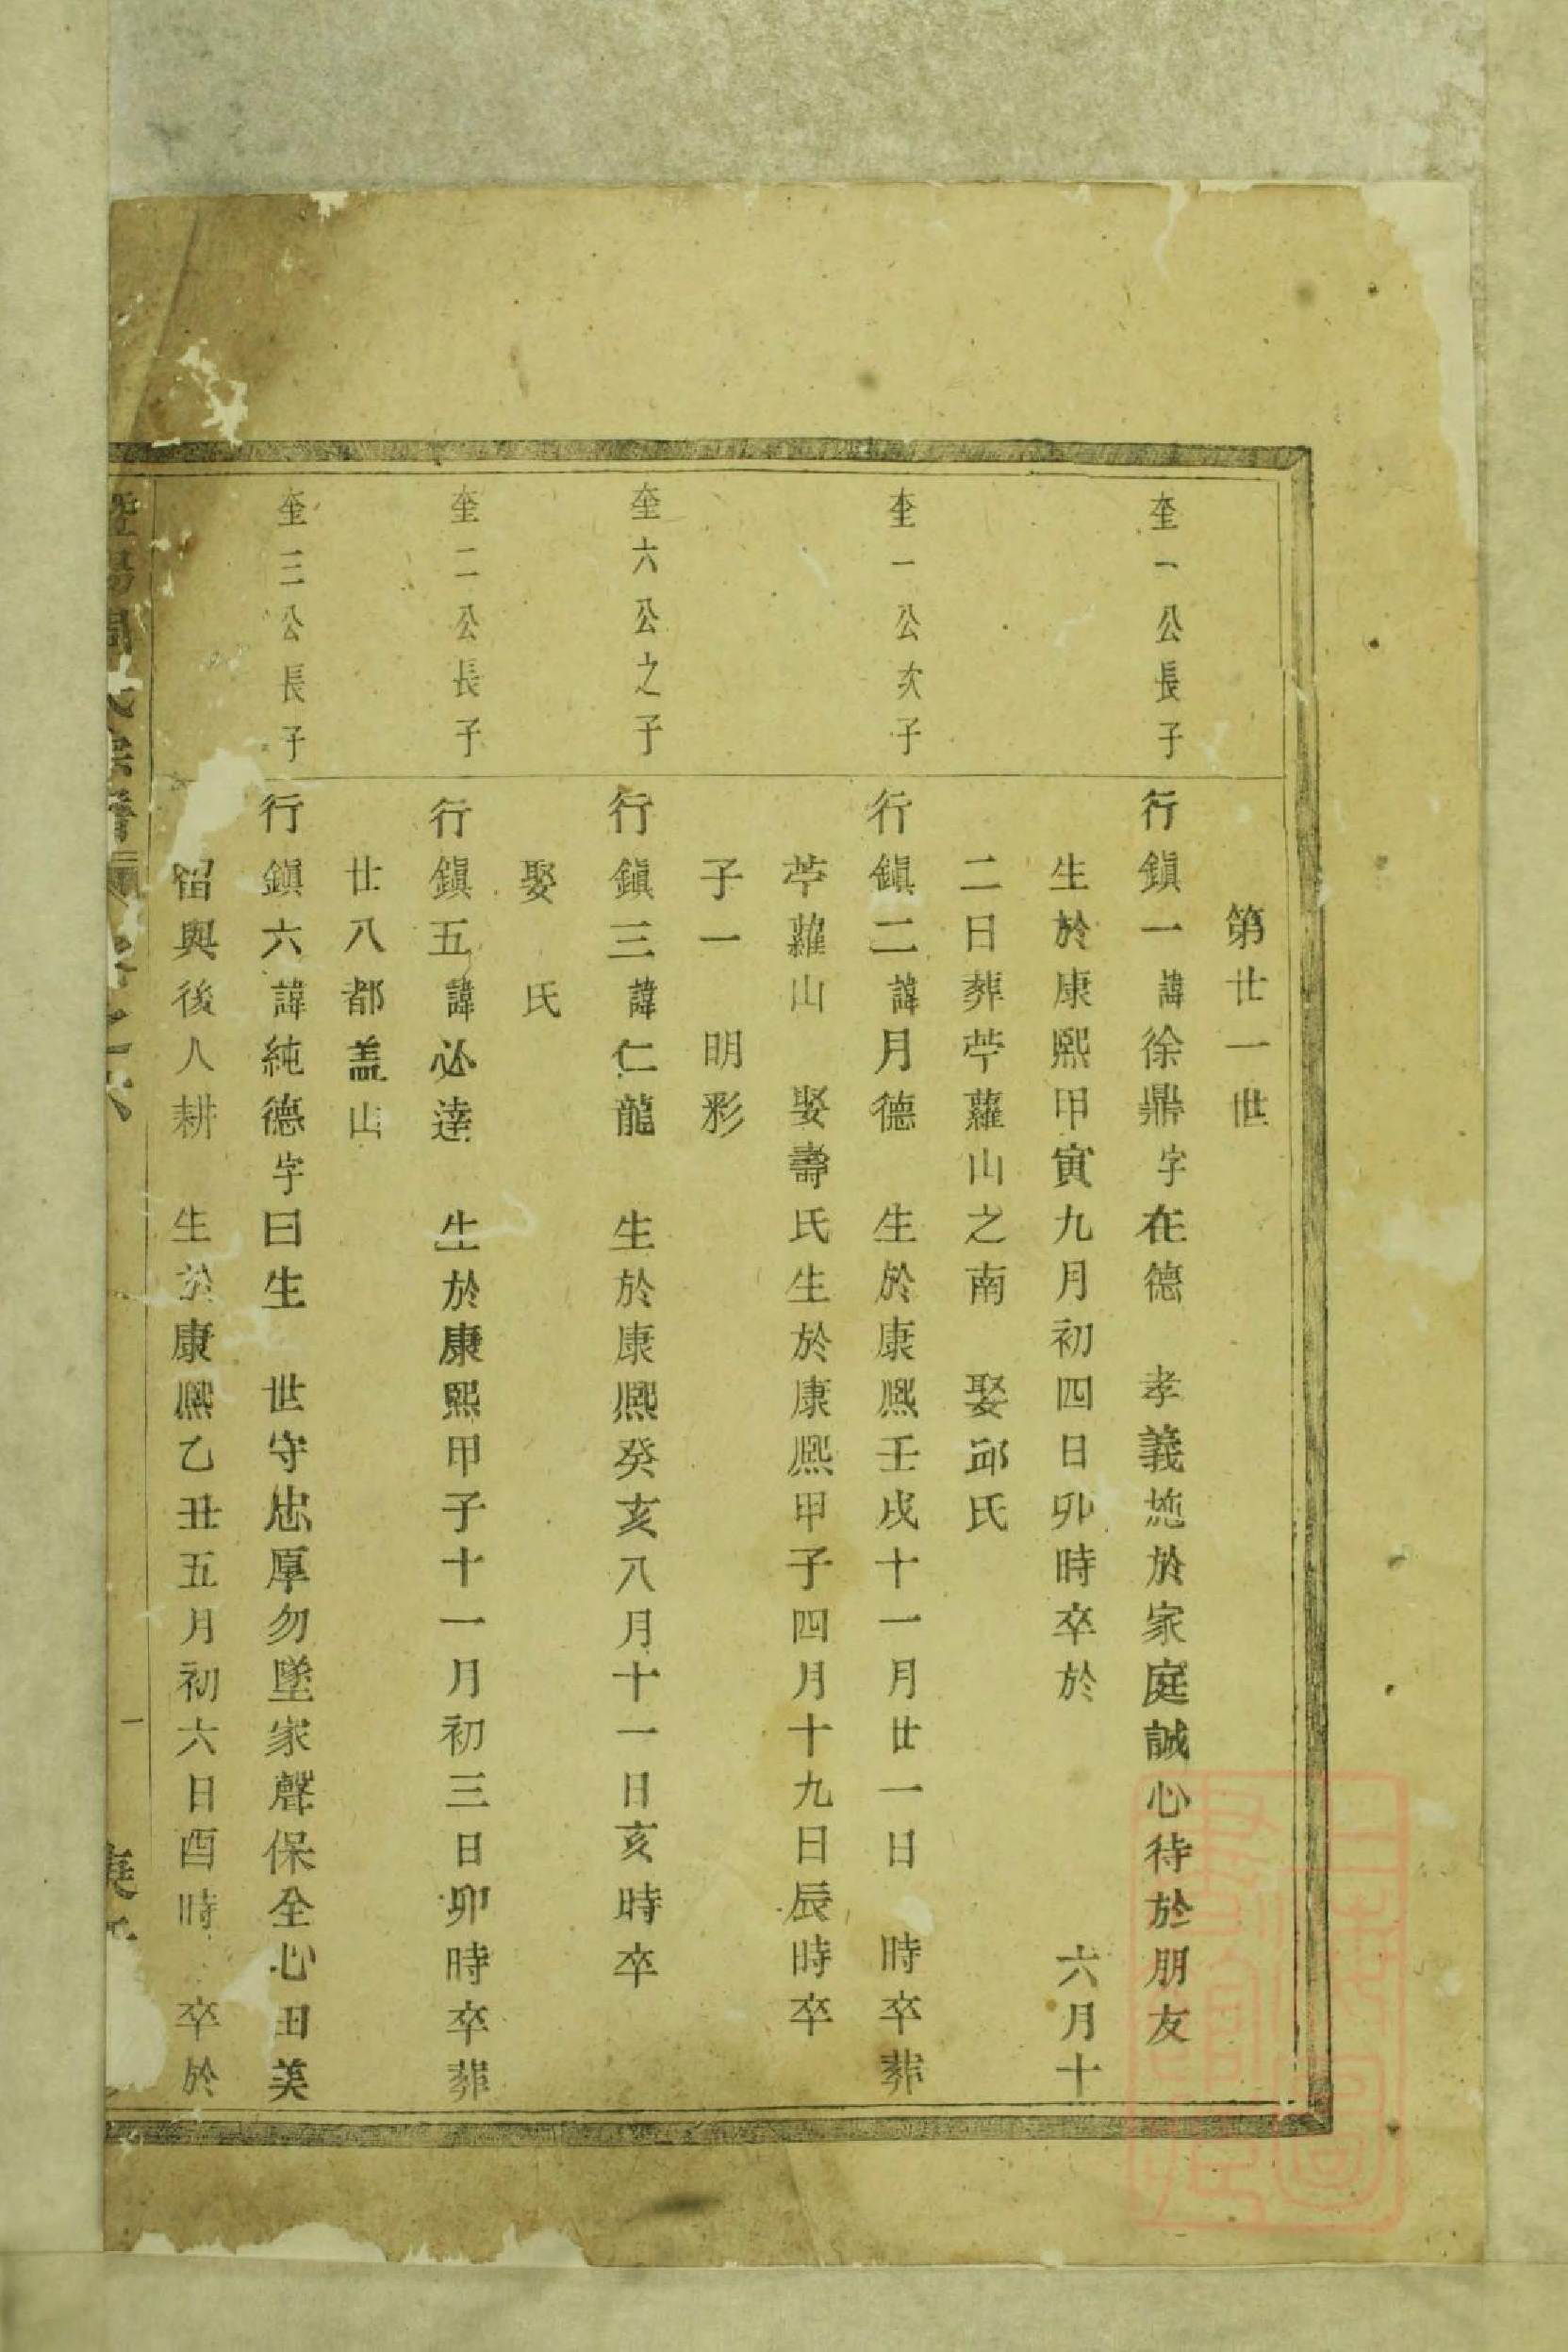 第廿一世
奎一公長子
行鎮一諱徐鼎字在德 孝義篤於家庭誠心待於朋友
生於康熙甲寅九月初四日卯時卒於 六月十
二日葬苧蘿山之南 娶邱氏
奎一公次子
行鎮二諱月德 生於康熙壬戌十一月廿一日 時卒葬
苧蘿山 娶壽氏生於康熙甲子四月十九日辰時卒
子一 明彩
奎六公之子
行鎮三諱仁龍 生於康熙癸亥八月十一日亥時卒
娶 氏
奎二公長子
行鎮五諱必達 生於康熙甲子十一月初三日卯時卒葬
廿八都盖山
奎三公長子
行鎮六諱純德字曰生 世守忠厚勿墜家聲保全心田美
留與後人耕 生於康熙乙丑五月初六日酉時 卒於
暨陽 氏宗譜 卷之六
一